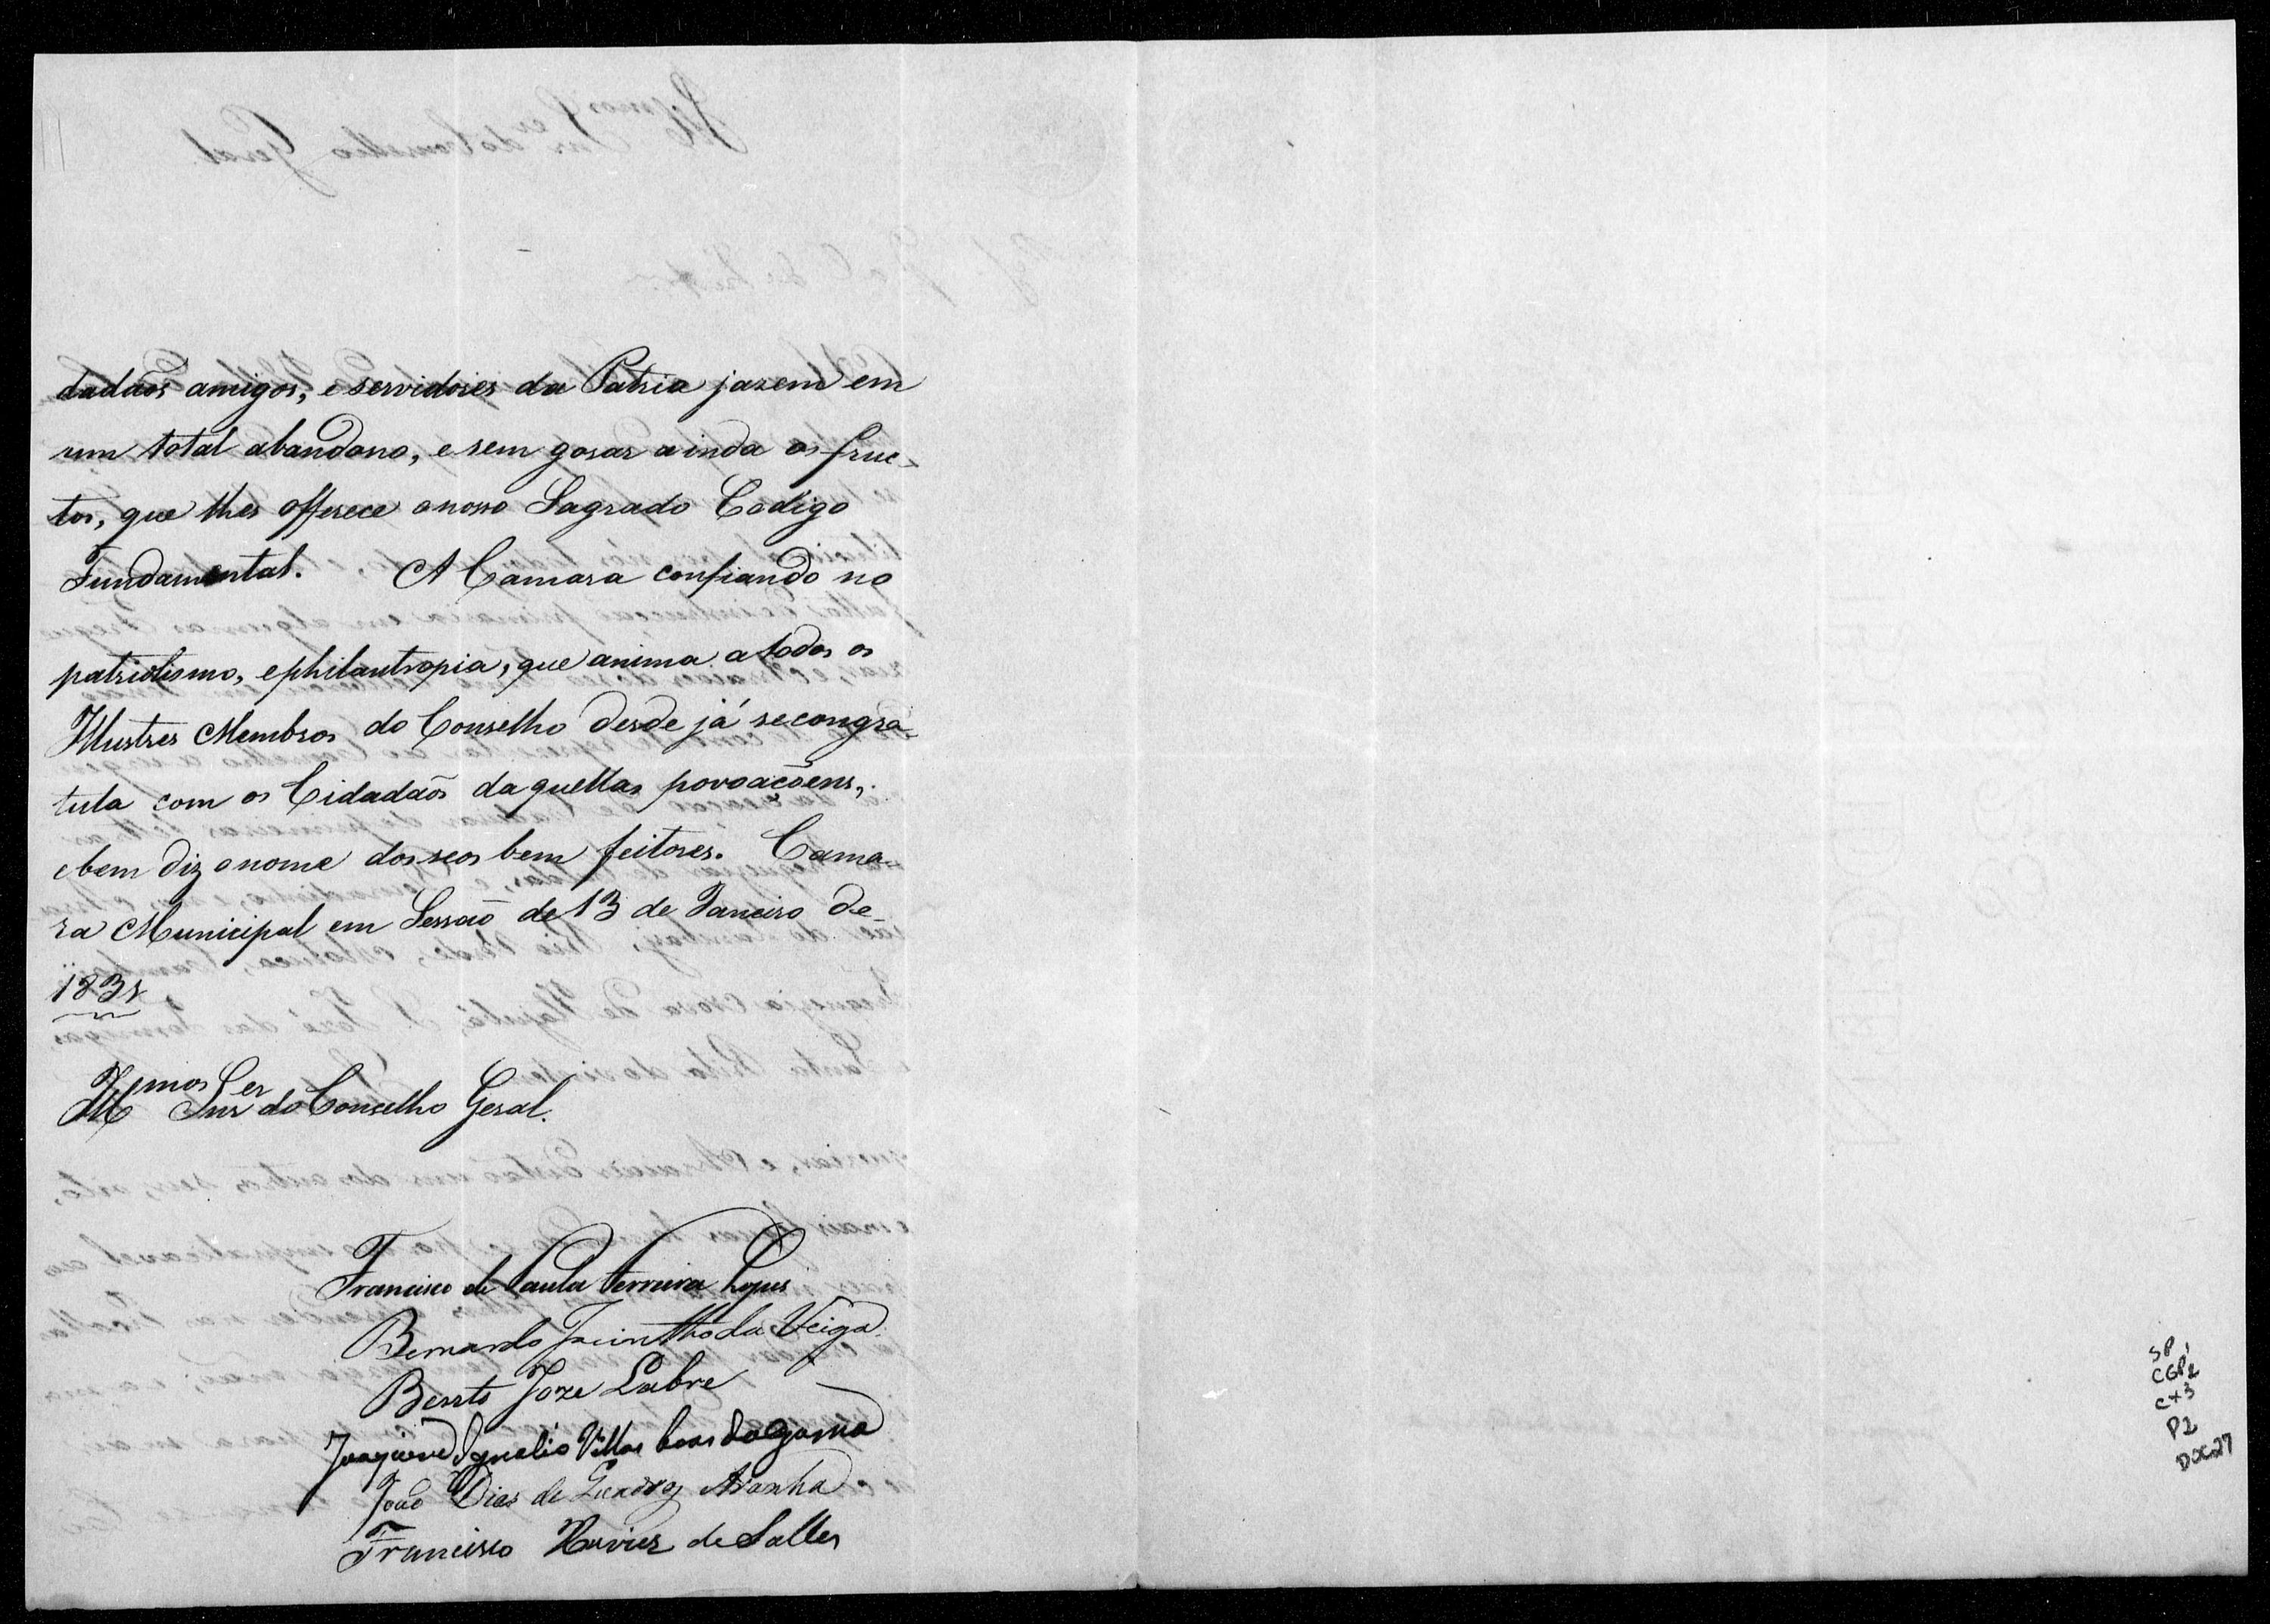 dadãos amigos, e servidores da Patria jazem em
um total abandono, e sem gosar ainda os fruc-
tos, que lhes offerece o nosso Sagrado Codigo
Fundamental. A Camara confiando no
patriotismo, e philantropia, que anima a todos os
Illustres Membros do Conselho desde já se congra-
tula com os Cidadãos daquellas povoaçoens,
e bem diz o nome dos seos bem feitores. Cama-
ra Municipal em Sessão de 13 de Janeiro de
Illmos Snres do Conselho Geral.
Francisco de Paula Ferreira Lopes
Bernardo Jacintho da Veiga
Bento Joze Labre
Joaquim Ignacio Villas boas da gama
João Dias de Aranha
Francisco Xavier de Salles
SP 1
CGP2
cx3
P2
DOC27